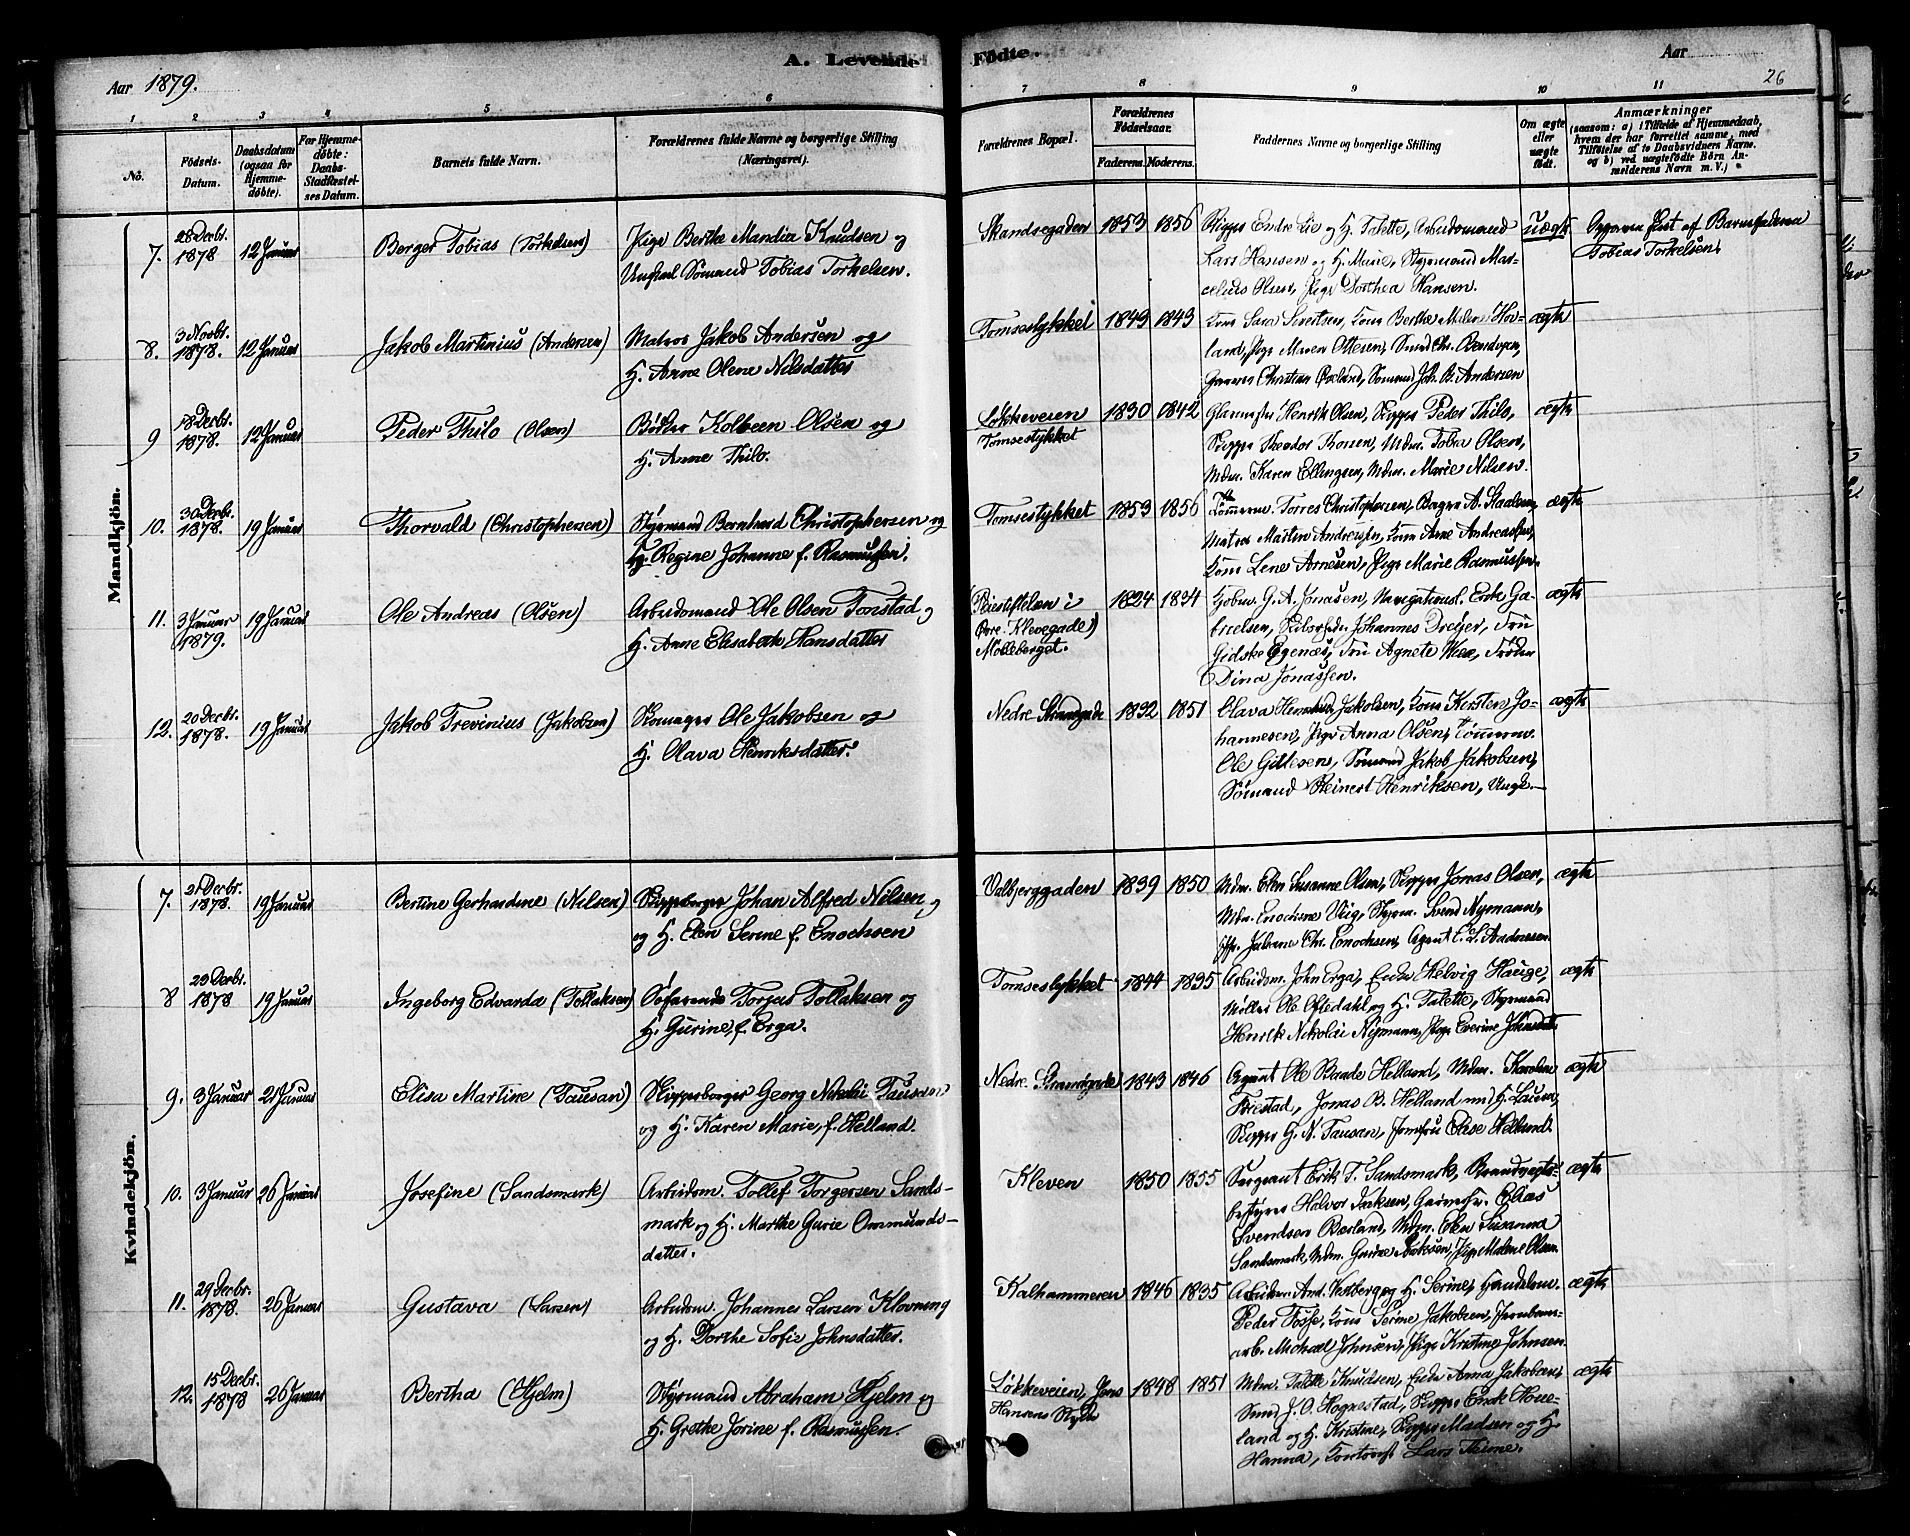 A. Levende Fødte.
Aar 1879.
Aar
26
1 2 3 4 5 6 7 8 9 10 11
No.
Fødsels-Datum.
Daabsdatum (ogsaa for Hjemmedøbte).
For Hjemmedøbte: Daabs Stadfæstelses Datum.
Barnets fulde Navn.
Forældrenes fulde Navne og borgerlige Stilling
(Næringsvei).
Forældrenes Bopæl.
Forældrenes Fødselsaar.
Faderens. Moderens.
Faddernes Navne og borgerlige Stilling
Om ægte eller uægte født.
Anmærkninger
(saasom: a) i Tilfælde af Hjemmedaab,
hvem der har forrettet samme, med
Tilføielse af to Daabsvidners Navne.
og b) ved uægtefødte Børn Anmelderens Navn m. V.)
Mandkjön.
7. 28 Decbr. 1878 12 Januar Berger Tobias (Torkelsen) Pige Berthe Mandia Knudsen og
Ungkarl Sømand Tobias Torkelsen.
Skandsegaden 1853 1856 Skipper Endre Lie og H. Talette, Arbeidsmand
Lars Hansen og H. Marie, Styrmand Marcelius Olsen, Pige Dorthea Hansen.
uægte
Opgaven sket af Barnefaderen
Tobias Torkelsen.
8. 3 Novbr. 1878. 12 Januar Jakob Martinius (Andersen) Matros Jakob Andersen og
H. Anne Olene Nilsdatter
Tomsestykket 1849 1843 Kone Sara Sivertsen, Kone Berthe Malene Hovland, Pige Maren Ottesen, Smed Chr. Bendixen,
Garver Christian Øxland, Sømand Joh. B. Andersen
ægte
9 18 Decbr. 1878. 12 Januar Peder Thilo (Olsen) Bødker Kolbeen Olsen og
H. Anne Thilo.
Løkkeveien
Tomsestykket
1830 1842 Glarmester Henrik Olsen, Skipper Peder Thilo,
Skipper Theodor Thorsen, Mdm. Tobia Olsen,
Mdm. Karen Ellingsen, Mdm. Marie Nilsen.
ægte
10. 30 Decbr. 1878. 19 Januar Thorvald (Christophersen) Styrmand Bernhard Christophersen og
H. Regine Johanne f. Rasmussen.
Tomsestykket 1853 1856 Tømmerm. Torres Christophersen, Bager A. Staalesen,
Matros Martin Andersen, Kone Anne Andreassen,
Kone Lene Arnesen, Pige Marie Rasmussen.
ægte
11. 3 Januar 1879. 19 Januar Ole Andreas (Olsen) Arbeidsmand Ole Olsen Tonstad og
H. Anne Elisabeth Hansdatter
Møllebergget.
1834 1834 Kjøbm. G. A. Jonasen, Navigationsl. Enke Gabrielsen, Johannes Dreyer, Fru
Gidske Egenæs, Fru Agnete Wexe, Frøken
Dina Jonassen.
ægte
12. 20 Decbr. 1878. 19 Januar Jakob Trevinius (Jakobsen) Skomager Ole Jakobsen og
H. Olava Henriksdatter.
Nedre Strandgade 1832 1851 Olava Jakobsen, Kone Kirsten Johannesen, Pige Anna Olsen, Tømmerm.
Ole Gillesen, Sømand Jakob Jakobsen,
Sømand Reinert Henriksen,
ægte
Kvindekjön.
7. 21 Decbr. 1878. 19 Januar Bertine Gerhardine (Nilsen) Skipperborger Johan Alfred Nilsen
og H. Elen Serine f. Enochsen
Valbjerggaden 1839 1850 Mdm. Elen Susanne Olsen, Skipper Jonas Olsen,
Mdm. Enochine Viig, Styrm. Svend Nymann,
Jfr. Juliane Chr. Enochsen, Agent C. L. Andersen.
ægte
8 23 Decbr. 1878 19 Januar Ingeborg Edvarda (Tollaksen) Søfarende Torger Tollaksen og
H. Gurine, f. Erga.
Tomsestykket 1844 1835 Arbeidsm. John Erga, Enke Helvig Hauge,
Møller Ole Oftedahl og H. Talette, Styrmand
Henrik Nikolai Nymann, Pige Everine Johnsdatter
ægte
9. 3 Januar 21 Januar Elisa Martine (Tausan) Skipperborger Georg Nikolai Tausan
og H. Karen Marie, f. Helland.
Nedre Strandgade 1843 1846 Agent Ole Baade Helland, Mdm. Karoline
Brestad, Jonas B. Helland med H. Laura,
Skipper G. N. Tausan, Jomfru Elise Helland.
ægte
10. 3 Januar 26 Januar Josefine (Sandsmark) Arbeidsm. Tollef Torgersen Sandsmark og H. Marthe Gurie Ommundsdatter.
Kleven 1850 1855 Sergeant Erik T. Sandsmark, Brandvagtsbestyrer Halvor Isaksen, Garmester Elias
Svendsen Berland, Mdm. Elen Susanna
Sandsmark, Mdm. Gurine Isaksen, Pige Malene Olsen.
ægte
11. 29 Decbr. 1878. 26 Januar Gustava (Larsen) Arbeidsm. Johannes Larsen Klovning
og H. Dorthe Sofie Johnsdatter.
Kalhammeren 1846 1835 Arbeidsm. And. Vestberg og H. Serine, Handelsm.
Peder Fosse, Kone Serine Jakobsen, Jernbanearb. Michael Johnsen, Pige Kristine Johnsen.
ægte
12. 15 Decbr. 1878 26 Januar Bertha (Hjelm) Styrmand Abraham Hjelm og
H. Grethe Jorine f. Rasmussen.
Løkkeveien, Jens
Hansens Stykke
1848 1851 Mdm. Talette Knudsen, Enke Anna Jakobsen,
Smed J. O. Hognestad, Skipper Enok Houeland og H. Kristine, Skipper Madsen og H.
Hanna, Kontorist Lars Thime.
ægte